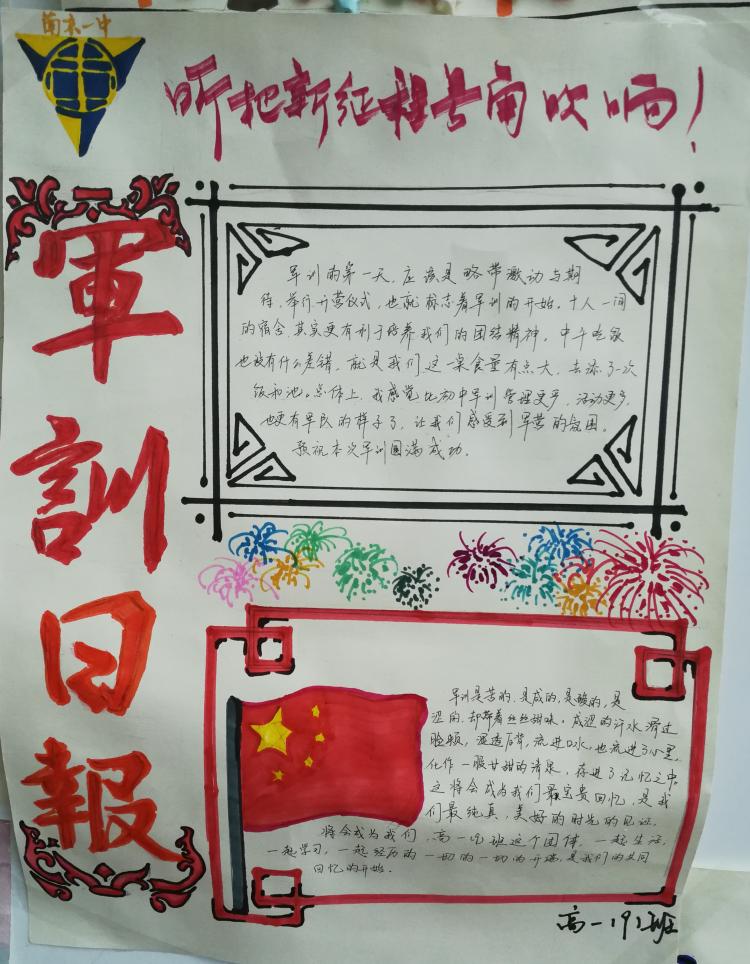 南京一中
听把新征程号角吹响！
軍訓日報
军训的第一天，应该是略带激动与期
待，举行开营仪式，也就标志着军训的开始。十人一间
的宿舍，其实更有利于培养我们的团结精神。中午吃饭
也没有什么差错，就是我们这一桌食量有点大，去添了一次
饭和汤。总体上，我感觉比初中军训管理更多，活动更多，
也更有军民的样子了，让我们感受到军营的氛围。
预祝本次军训圆满成功。
军训是苦的，是咸的，是酸的，是
涩的，却带着丝丝甜味。咸涩的汗水滑过
脸颊，湿透后背，流进口水，也流进了心里，
化作一股甘甜的清泉，存进了记忆之中。
这将会成为我们最宝贵回忆，是我
们最纯真，美好的时光的见证。
将会成为我们，高一19班这个团体，一起生活，
一起学习，一起经历的一切的一切的开端，是我们的共同
回忆的开始。
高一19班